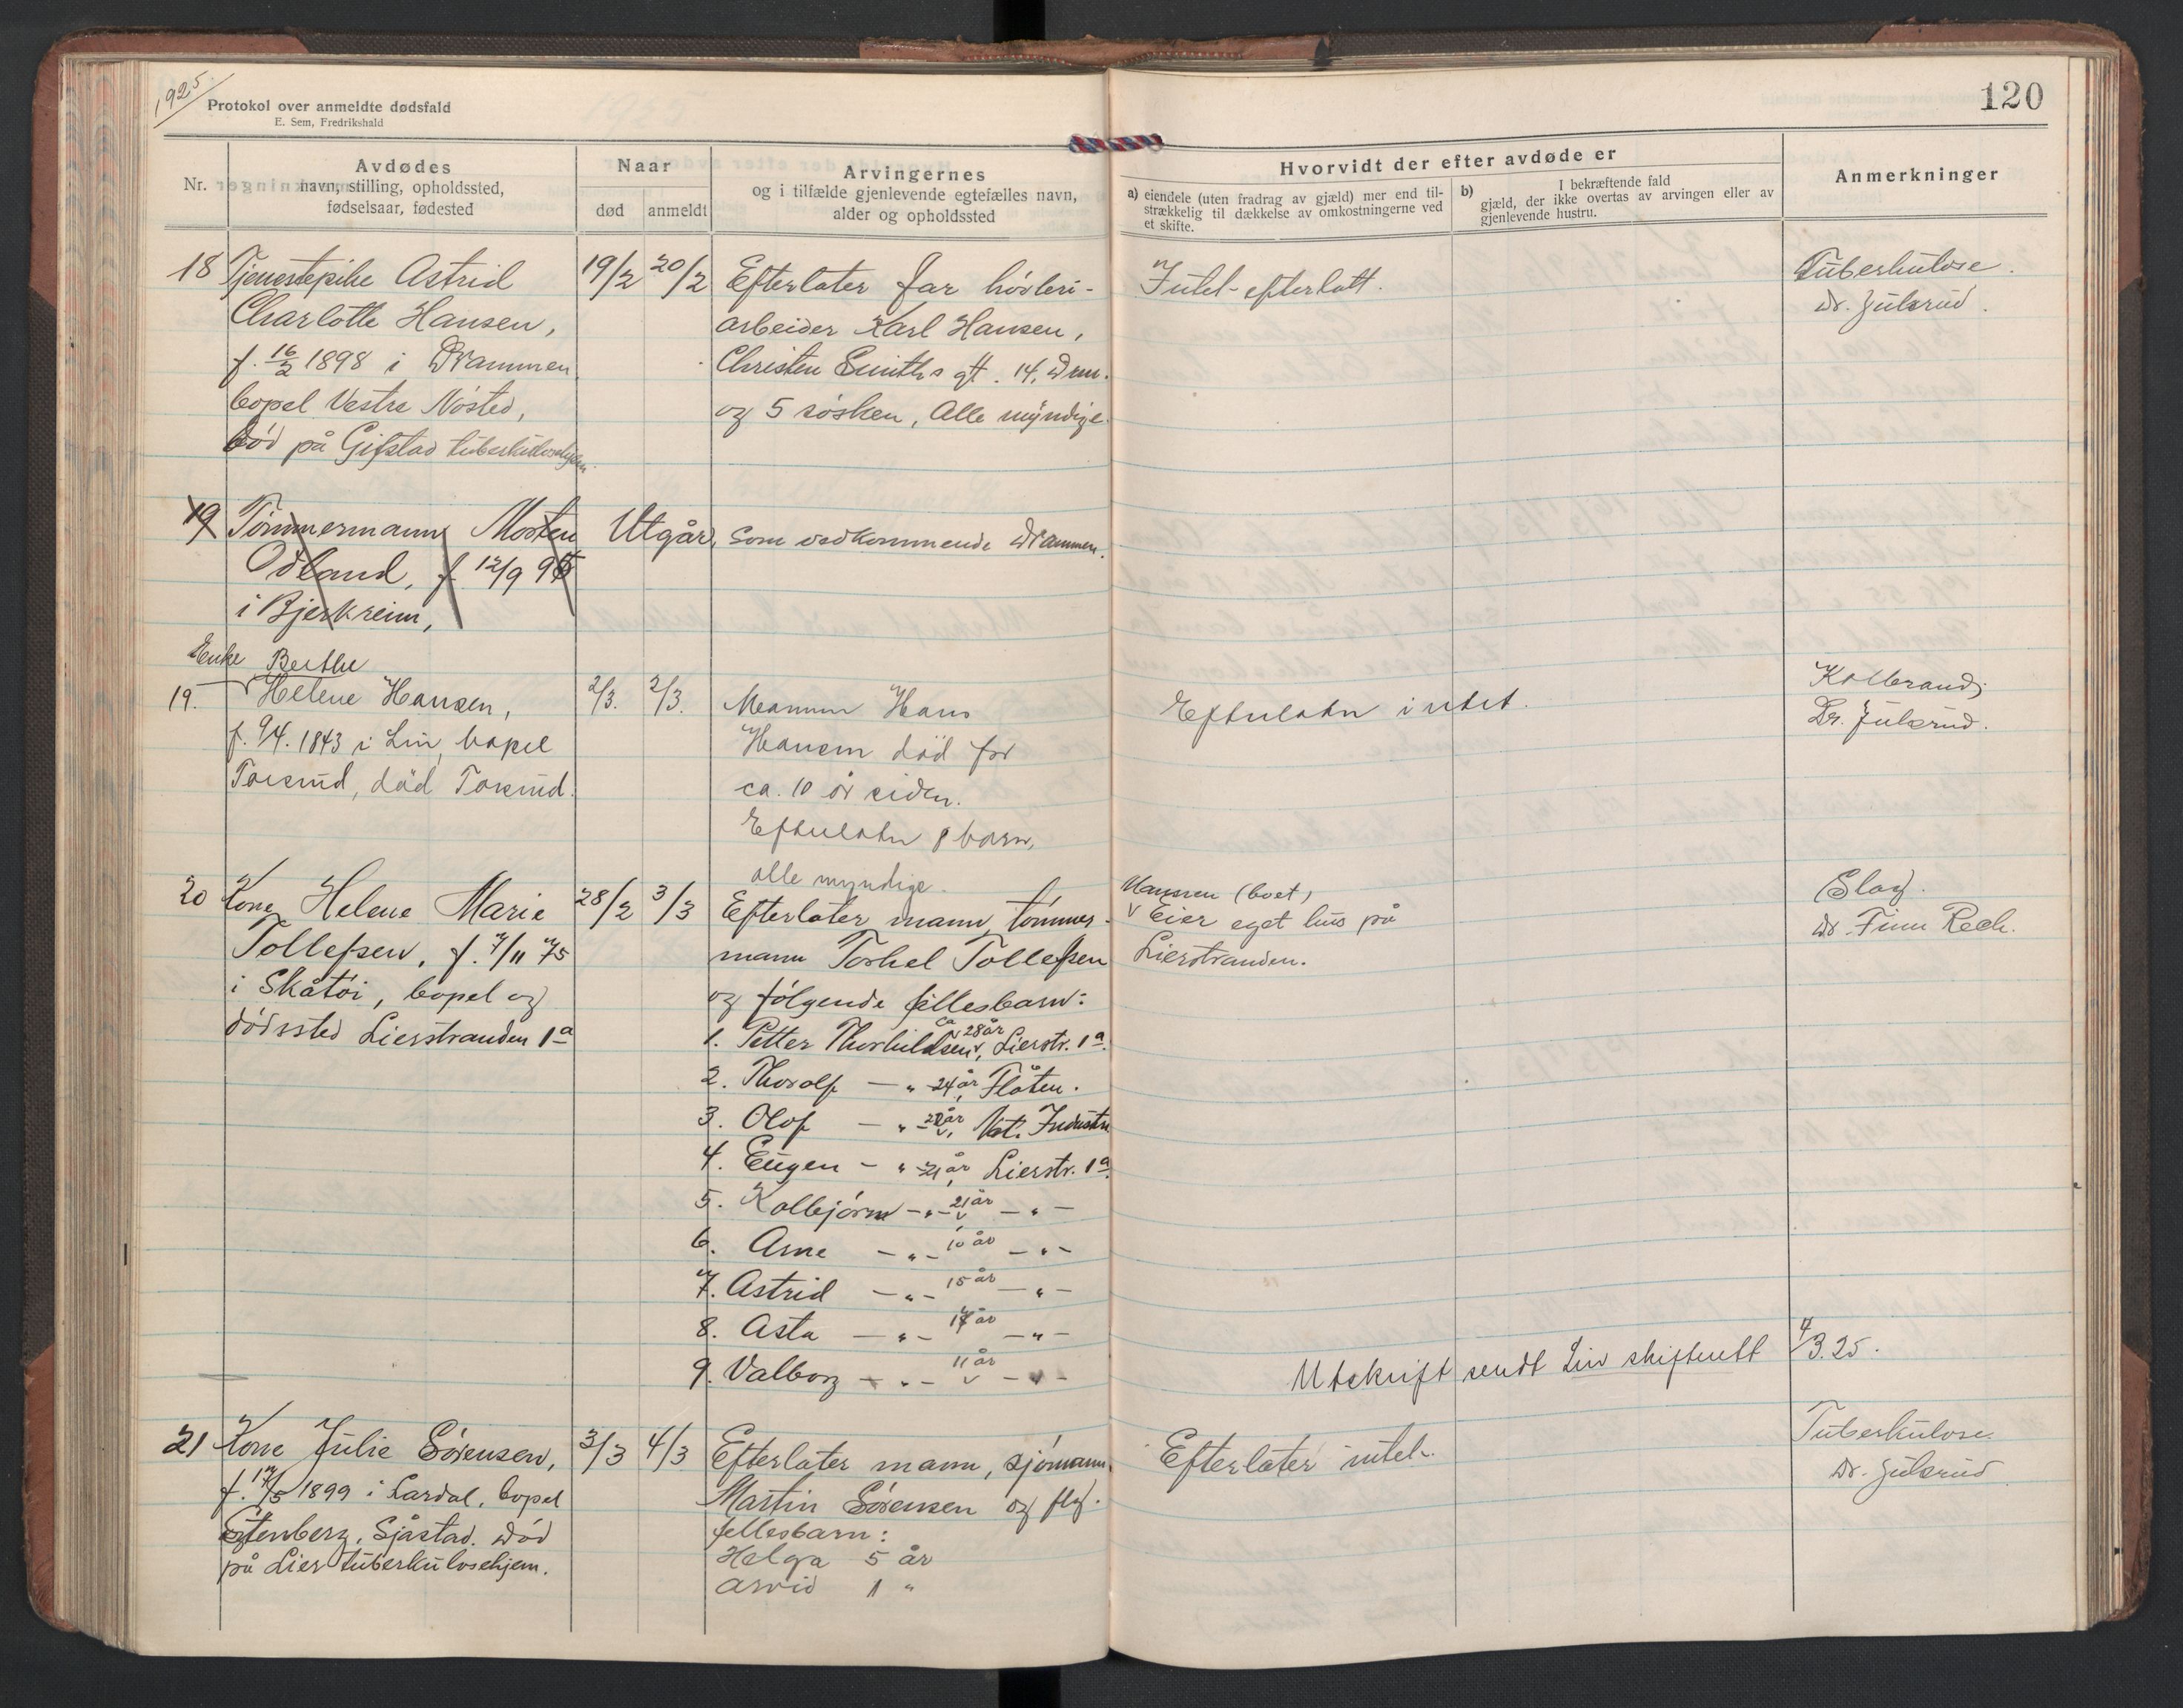 1925
Protokol over anmeldte dødsfald
E. Sem, Fredrikshald
120
Nr.
Avdødes
navn, stilling, opholdssted,
fødselsaar, fødested
Naar
død
anmeldt
Arvingernes
og i tilfælde gjenlevende egtefælles navn,
alder og opholdssted
Hvorvidt der efter avdøde er
a) eiendele (uten fradrag av gjæld) mer end til-
strækkelig til dækkelse av omkostningerne ved
et skifte.
b) I bekræftende fald
gjæld, der ikke overtas av arvingen eller av
gjenlevende hustru.
Anmerkninger
18 Tjenestepike Astrid
Charlotte Hansen,
f. 16/2 1898 i Drammen
bopel Vestre Nøsted,
død på Gifstad tuberkulosehjem.
19/2 20/2
Efterlater far høvleri-
arbeider Karl Hansen,
Christen Smiths gt. 14, Drm.
og 5 søsken, Alle myndige.
Intet efterlatt.
Tuberkulose.
Dr. Julsrud.
19 Tømmermann Morten
Odland, f. 12/9 95
i Bjerkreim,
Utgår, som vedkommende Drammen.
Enke Berthe
19. Helene Hansen,
f. 9/4. 1843 i Lier, bopel
Torsrud, død Torsrud.
2/3. 2/3.
Mannen Hans
Hansen død for
ca. 10 år siden.
Efterlater 8 barn,
alle myndige.
Efterlater intet.
Kolbrand;
Dr. Julsrud.
20 Kone Helene Marie
Tollefsen, f. 7/11 75
i Skåtøi, bopel og
dødssted Lierstranden 1a
28/2 3/3
Efterlater mann, tømmer-
mann Torkel Tollefsen
og følgende fellesbarn:
1. Petter Thorkildsen, ca 28 år Lierstr. 1a.
2. Thorolf — " 24 år, Flåten.
3. Olof — " — år, Nat. Industri
4. Eugen — " 21 år, Lierstr. 1a.
5. Kolbjørn — " — 21 år — " —
6. Arne — " — 10 år — " —
7. Astrid — " — 15 år — " —
8. Asta — " — år — " —
9. Valborg — " — 11 år — " —
Mannen (boet)
Eier eget hus på
Lierstranden.
Slag.
Dr. Finn
Utskrift sendt Lier skifterett 4/3.25.
21 Kone Julie Sørensen,
f. 17/5 1899 i Lardal, bopel
Stenberg, Sjåstad. Død
på Lier tuberkulosehjem.
3/3 4/3
Efterlater mann, sjømann
Martin Sørensen og flg.
fellesbarn:
Helga 5 år
Arvid 1 "
Efterlater intet.
Tuberkulose.
Dr. Julsrud